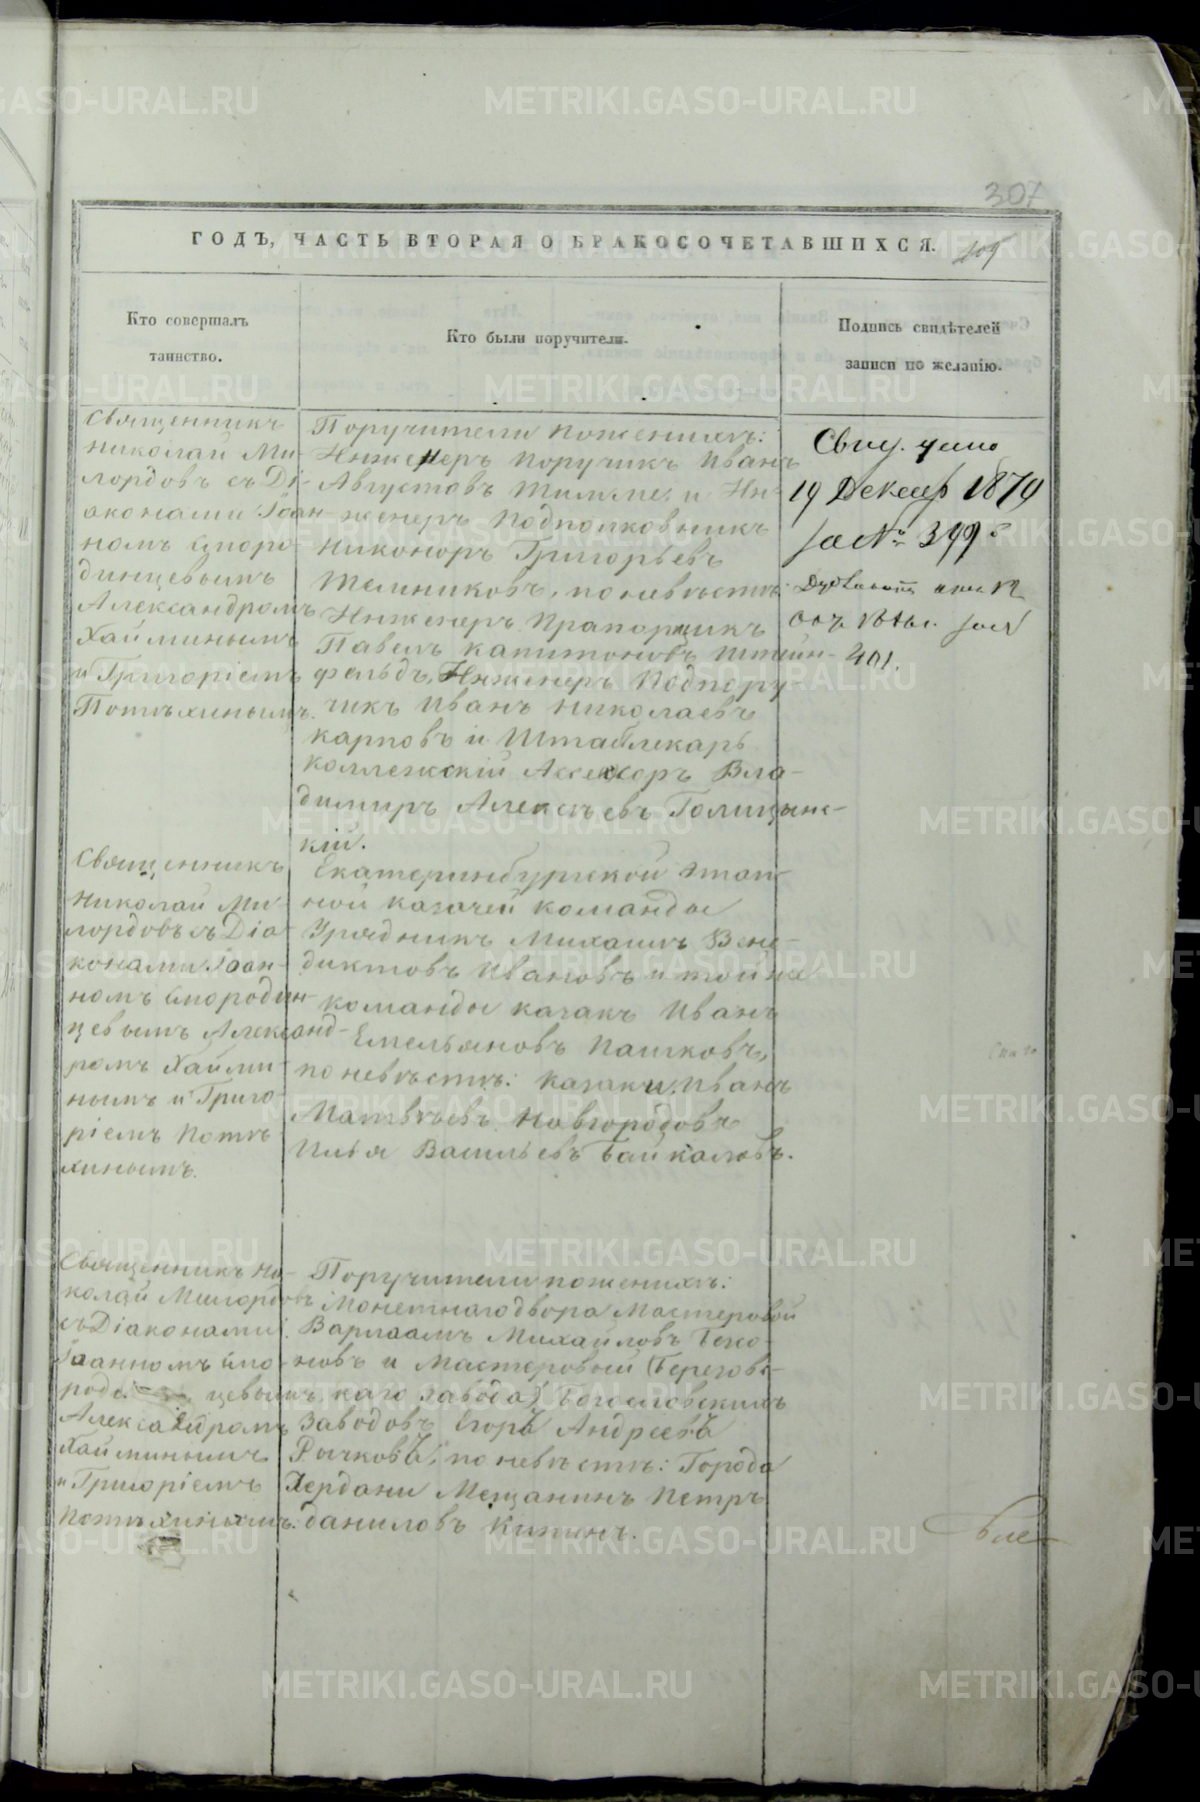 307
ГОДЪ, ЧАСТЬ ВТОРАЯ О БРАКОСОЧЕТАВШИХСЯ.
109
Кто совершалъ
таинство.
Кто были поручители.
Подпись свидѣтелей
записи по желанію.
Священникъ
Николай Ми-
лордовъ съ Ді-
аконами Іоан-
номъ Сморо-
динцевымъ
Александромъ
Хайминымъ
и Григоріемъ
Потѣхинымъ.
Поручители по женихѣ:
Инженеръ Поручикъ Иванъ
Августовъ Тимме, и Ин-
женеръ Подполковникъ
Никоноръ Григорьевъ
по невѣстѣ:
Инженеръ Прапорщикъ
Павелъ Капитоновъ Штейн-
фельдъ, Инженеръ Подпору-
чикъ Иванъ Николаевъ
Карповъ и Штаблекарь
Коллежскій Ассесоръ Вла-
димиръ Алексѣевъ Голицынс-
кій.
19 Декабр 1879
за № 399
401.
Священникъ
Николай Ми-
лордовъ съ Діа-
конами Іоан-
номъ Смородин-
цевымъ Александ-
ромъ Хайми-
нымъ и Григо-
ріемъ Потѣ
хинымъ.
Екатеринбургской этап-
ной казачей команды
Урядникъ Михаилъ Вене-
диктовъ Ивановъ и той же
команды казакъ Иванъ
Емельяновъ Пашковъ,
по невѣстѣ: казаки, Иванъ
Матвѣевъ Новгородовъ
Илья Васильевъ Байкаловъ.
Священникъ Ни-
колай Милордовъ
съ Діаконами
Іоанномъ Смо-
роди цевымъ
Александромъ
Хайминымъ
и Григоріемъ
Потѣхинымъ.
Поручители по женихѣ:
Монетнаго двора Мастеровой
Варлаамъ Михайловъ
и Мастеровый (Березовс-
каго завода) Богословскихъ
Заводовъ Егоръ Андреевъ
Рычковъ; по невѣстѣ: Города
Мещанинъ Петръ
Даниловъ